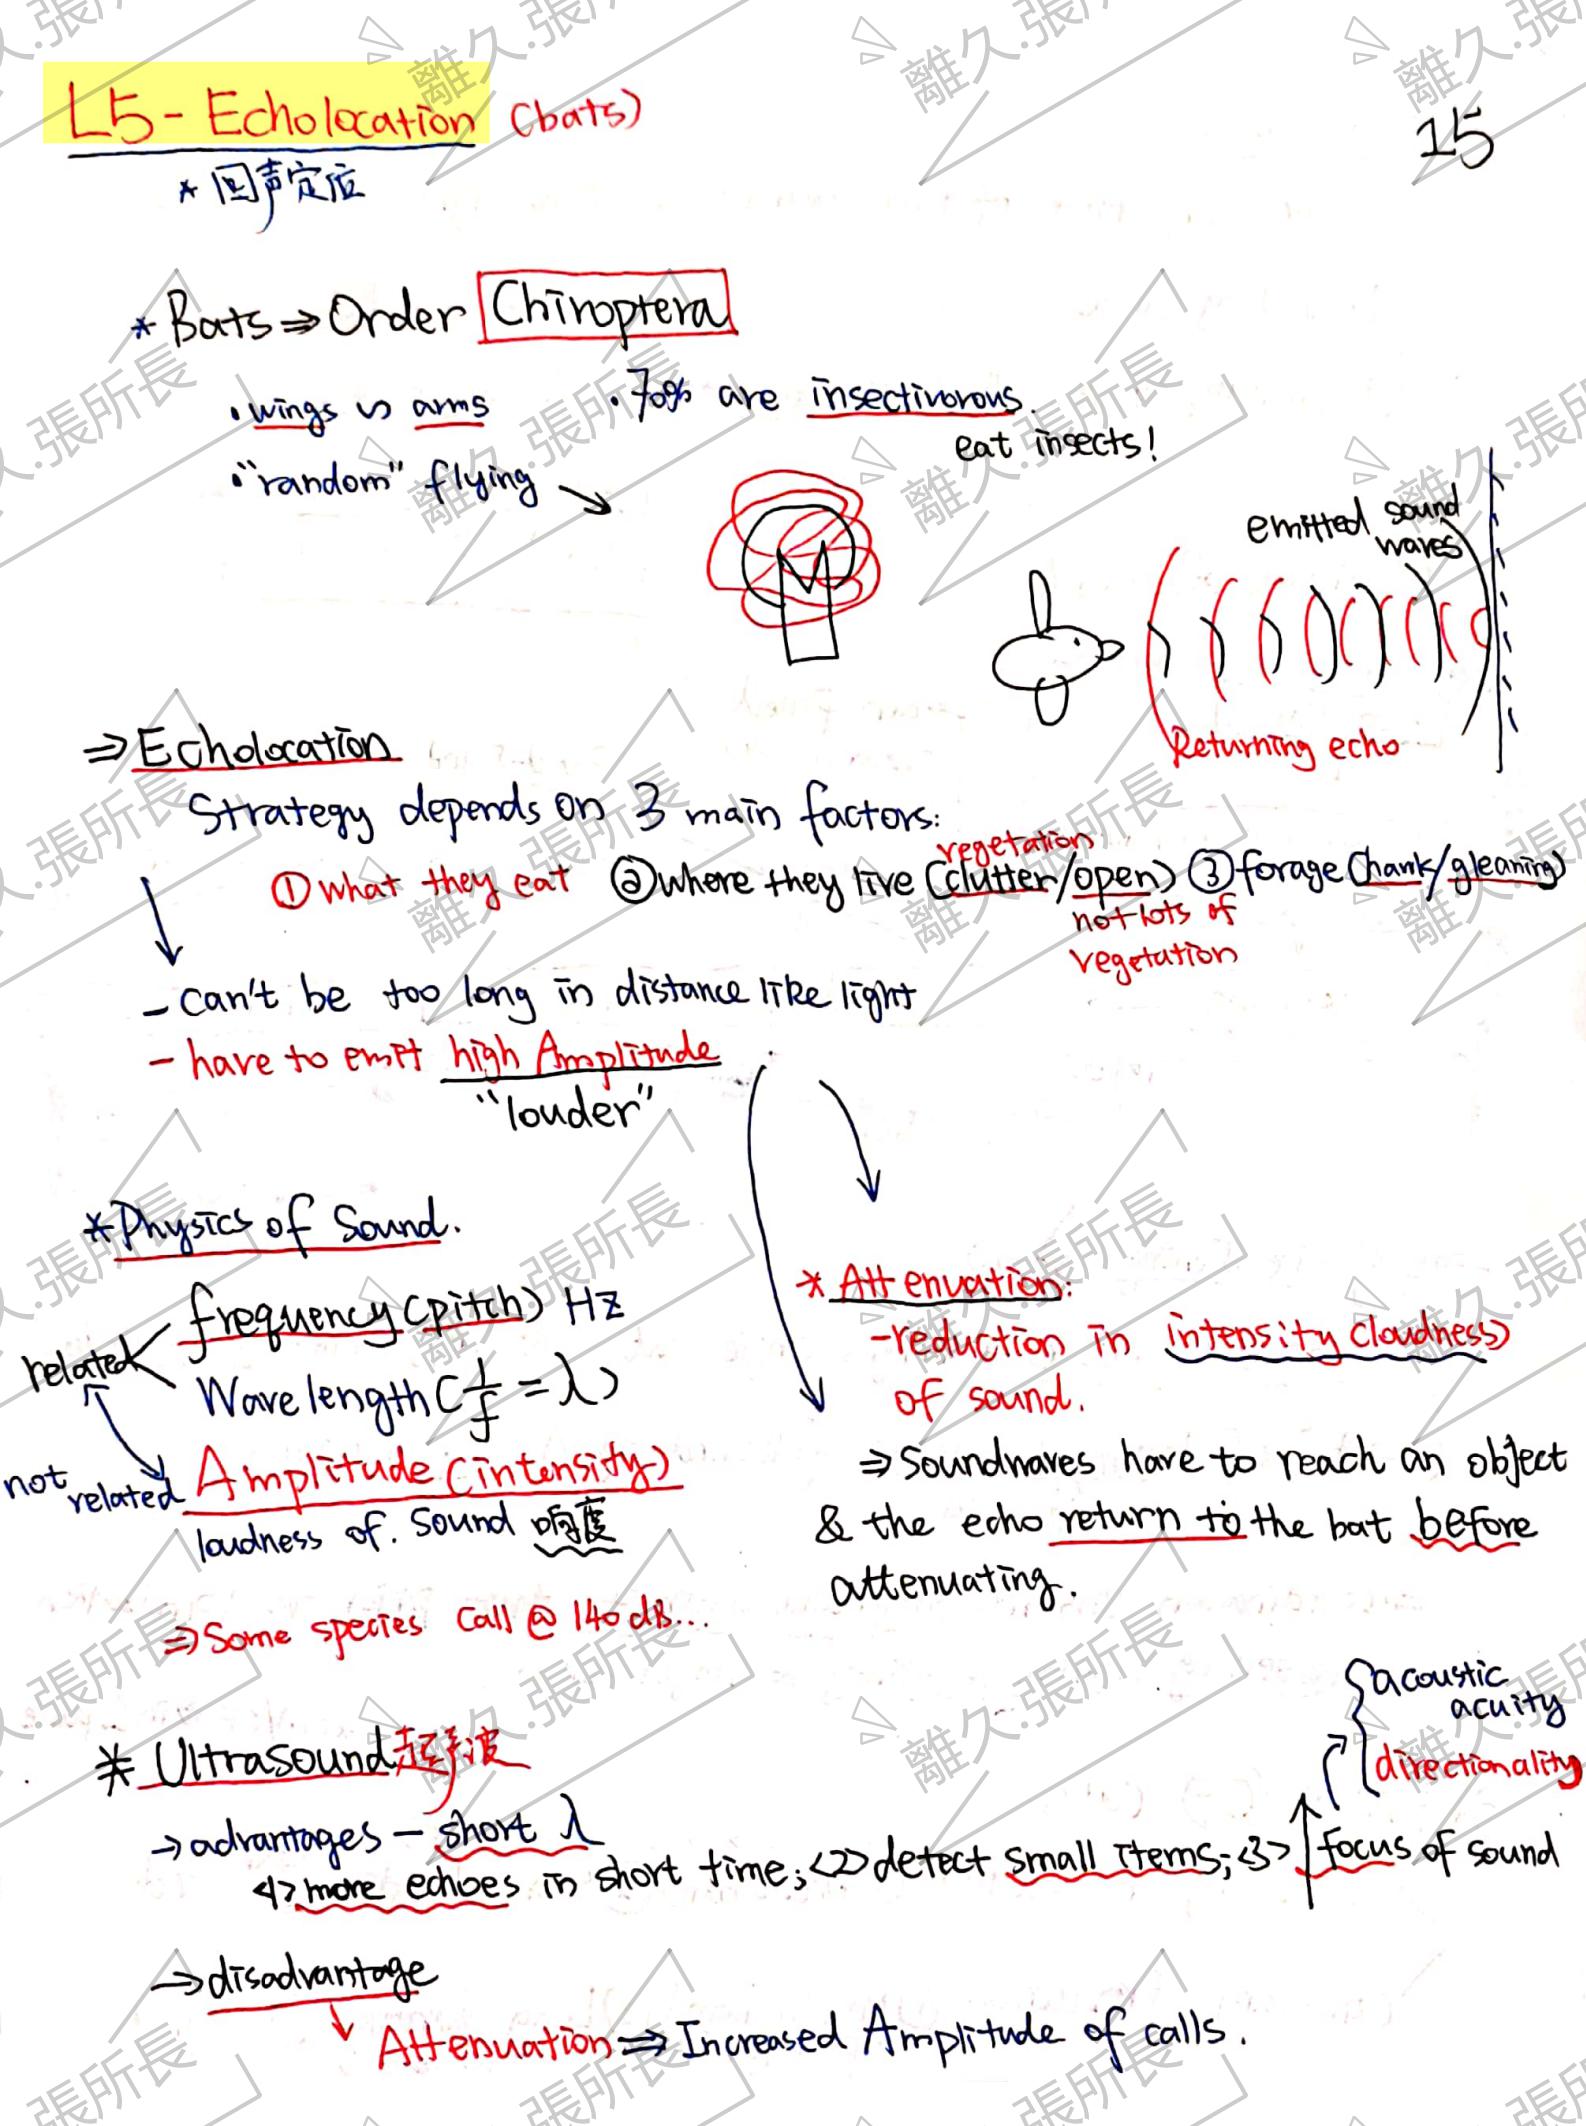 L5 - Echolocation (bats)
15
* 回声定位
* Bats ⇒ Order Chiroptera
• wings vs arms
• 70% are insectivorous.
eat insects!
• "random" flying →
emitted sound
waves
Returning echo
⇒ Echolocation
Strategy depends on 3 main factors:
vegetation
① what they eat ② where they live (clutter/open) ③ forage (hank/gleaning)
not lots of
vegetation
- can't be too long in distance like light
- have to emit high Amplitude
"louder"
* Physics of Sound.
frequency (pitch) Hz
related
Wavelength (1/f = λ)
not related
Amplitude (intensity)
loudness of. Sound 响度
⇒ Some species call @ 140 dB...
* Attenuation:
- reduction in intensity (loudness)
of sound.
⇒ Soundwaves have to reach an object
& the echo return to the bat before
attenuating.
* Ultrasound 超声波
→ advantages - short λ
<1> more echoes in short time; <2> detect small items; <3> ↑ focus of sound
acoustic
acuity
directionality
→ disadvantage
↓ Attenuation ⇒ Increased Amplitude of calls.
離久.張所長